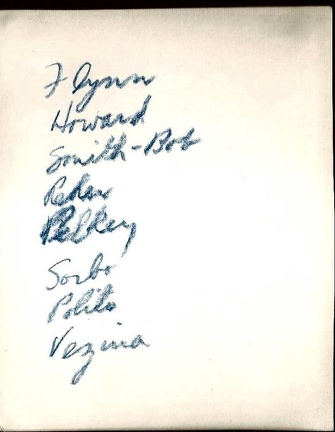 Flynn
Howard
Smith-Bob
Pelkey
Sorbo
Polito
Vezina